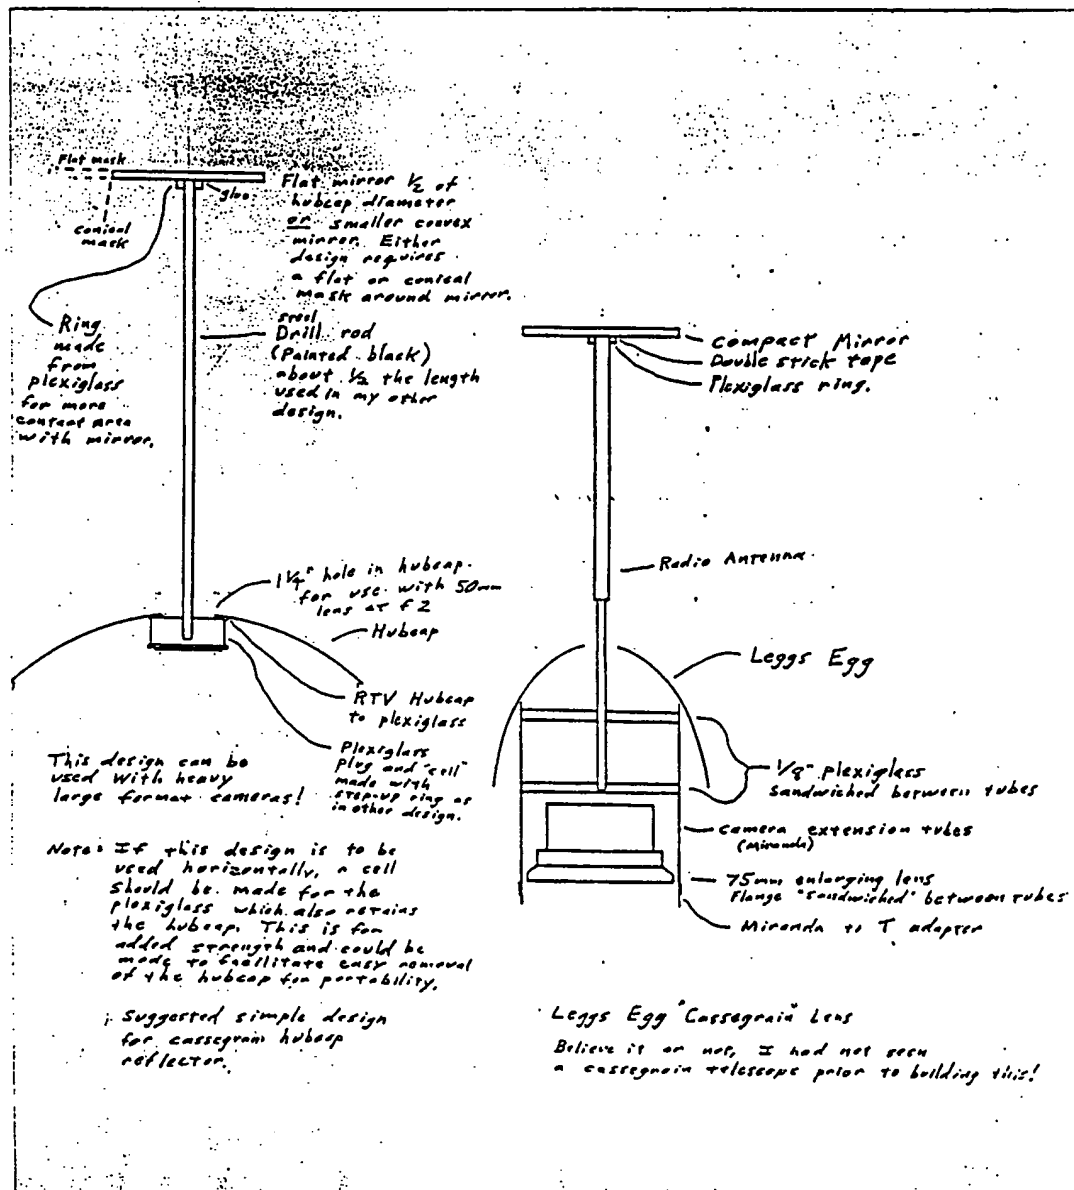 Flat mask
conical
mask
glue
Flat mirror 1/2 of
hubcap diameter
or smaller convex
mirror. Either
design requires
a flat or conical
mask around mirror.
Ring
made
from
plexiglass
for more
contact area
with mirror.
steel
Drill rod
(Painted black)
about 1/2 the length
used in my other
design.
1 1/4" hole in hubcap
for use with 50mm
lens at f2
Hubcap
RTV Hubcap
to plexiglass
Plexiglass
plug and "cell"
made with
step-up ring as
in other design.
This design can be
used with heavy
large format cameras!
Note: If this design is to be
used horizontally, a cell
should be made for the
plexiglass which also retains
the hubcap. This is for
added strength and could be
made to facilitate easy removal
of the hubcap for portability.
Suggested simple design
for cassegrain hubcap
reflector.
compact Mirror
Double stick tape
Plexiglass ring.
Radio Antenna
Leggs Egg
1/8" plexiglass
Sandwiched between tubes
camera extension tubes
(Miranda)
75mm enlarging lens
Flange "sandwiched" between tubes
Miranda to T adapter
Leggs Egg "Cassegrain" Lens
Believe it or not, I had not seen
a cassegrain telescope prior to building this!